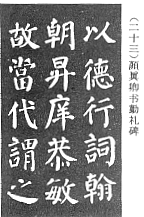 (二十三)颜真卿书勤礼碑
以德行詞翰
朝昇庠恭敏
故當代謂之